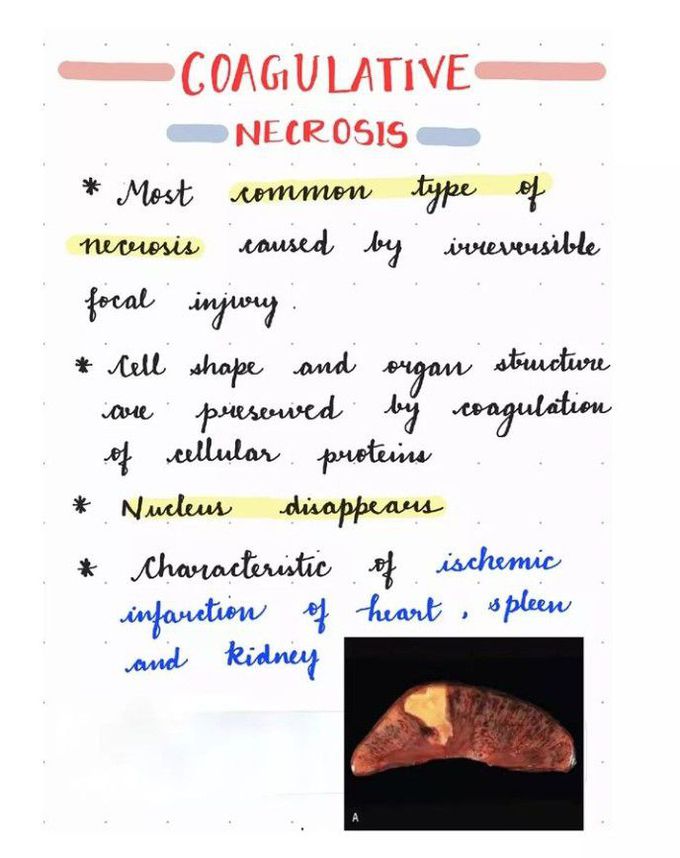 COAGULATIVE
NECROSIS
* Most common type of
necrosis caused by irreversible
focal injury.
* Cell shape and organ structure
are preserved by coagulation
of cellular proteins
* Nucleus disappears
* Characteristic of ischemic
infarction of heart, spleen
and kidney
A